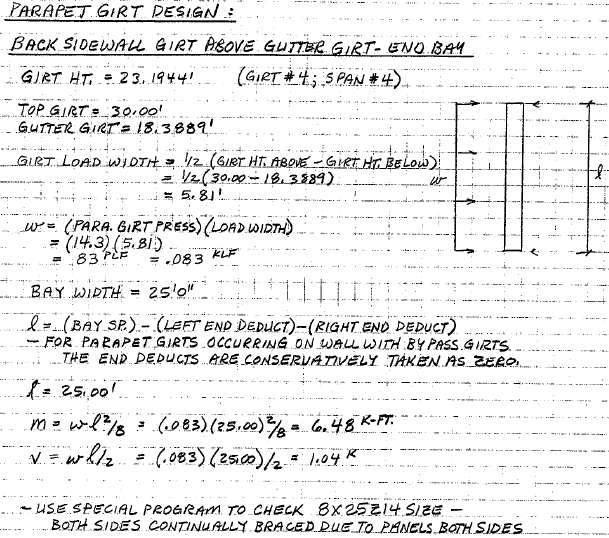 PARAPET GIRT DESIGN:
BACK SIDEWALL GIRT ABOVE GUTTER GIRT - END BAY
GIRT HT. = 23.1944' (GIRT #4; SPAN #4)
TOP GIRT = 30.00'
GUTTER GIRT = 18.3889'
GIRT LOAD WIDTH = 1/2 (GIRT HT. ABOVE - GIRT HT. BELOW)
= 1/2 (30.00 - 18.3889)
= 5.81'
w
l
w = (PARA. GIRT PRESS)(LOAD WIDTH)
= (14.3)(5.81)
= 83 PLF = .083 KLF
BAY WIDTH = 25'0"
l = (BAY SP.) - (LEFT END DEDUCT) - (RIGHT END DEDUCT)
- FOR PARAPET GIRTS OCCURRING ON WALL WITH BYPASS GIRTS
THE END DEDUCTS ARE CONSERVATIVELY TAKEN AS ZERO.
l = 25.00'
m = wl²/8 = (.083)(25.00)²/8 = 6.48 K-FT.
v = wl/2 = (.083)(25.00)/2 = 1.04 K
- USE SPECIAL PROGRAM TO CHECK 8X25Z14 SIZE -
BOTH SIDES CONTINUALLY BRACED DUE TO PANELS BOTH SIDES